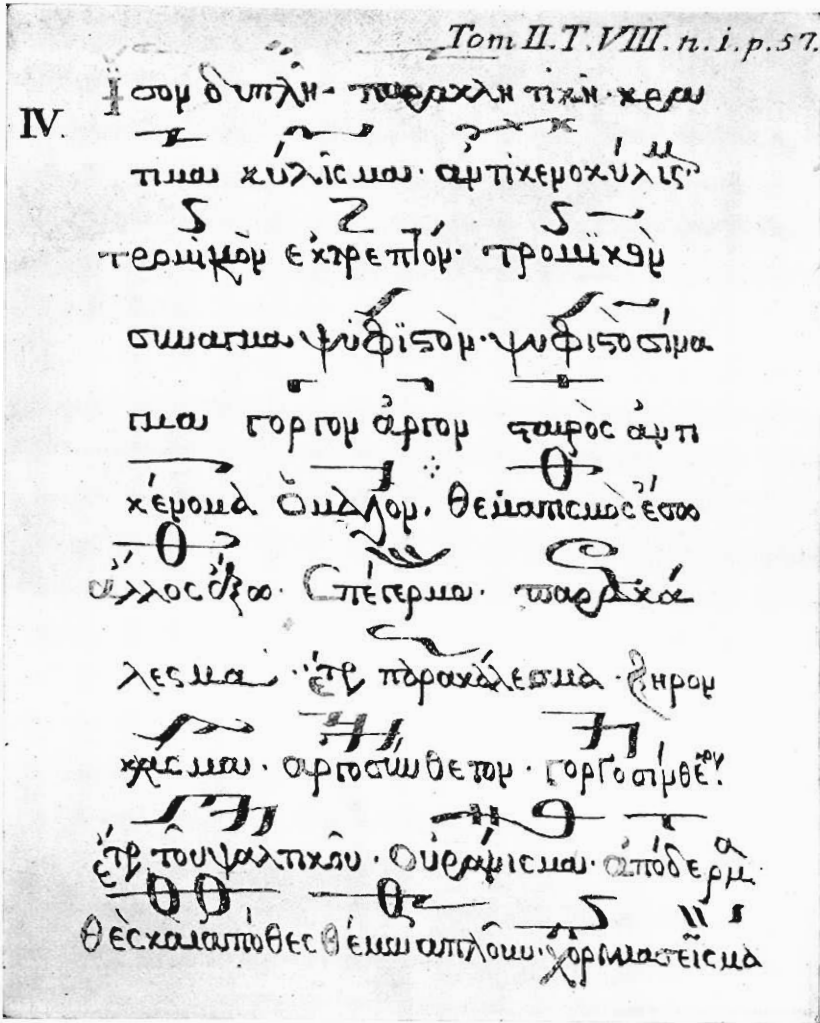 Tom II. T. VIII. n. i. p. 57.
ἴσον διπλὴ· παρακλητικὴ· κρα
IV.
τημα κύλισμα· ἀντικενοκύλισ
τρομικὸν ἐκτρεπτὸν· τρομικὸν
σιναγμα ψυφιστὸν· ψυφιστοσίνα
γμα γοργον ἀργον σταυρὸς ἀντι
κένομα ὁμαλον· θεματισμὸς ἔσω
ἄλλος ἔξω· ἐπέγερμα· παρακά
λεσμα· ἕτρ παρακάλεσμα· ξηρον
κλασμα· αργοσύνθετον· γοργοσίνθετον·
ἕτρ τοῦ ψαλτικοῦ· οὐράνισμα· ἀπόδερμα
θὲς καὶ ἀπόθες θέμα απλοῦν· χόρευμα τεῖσμα